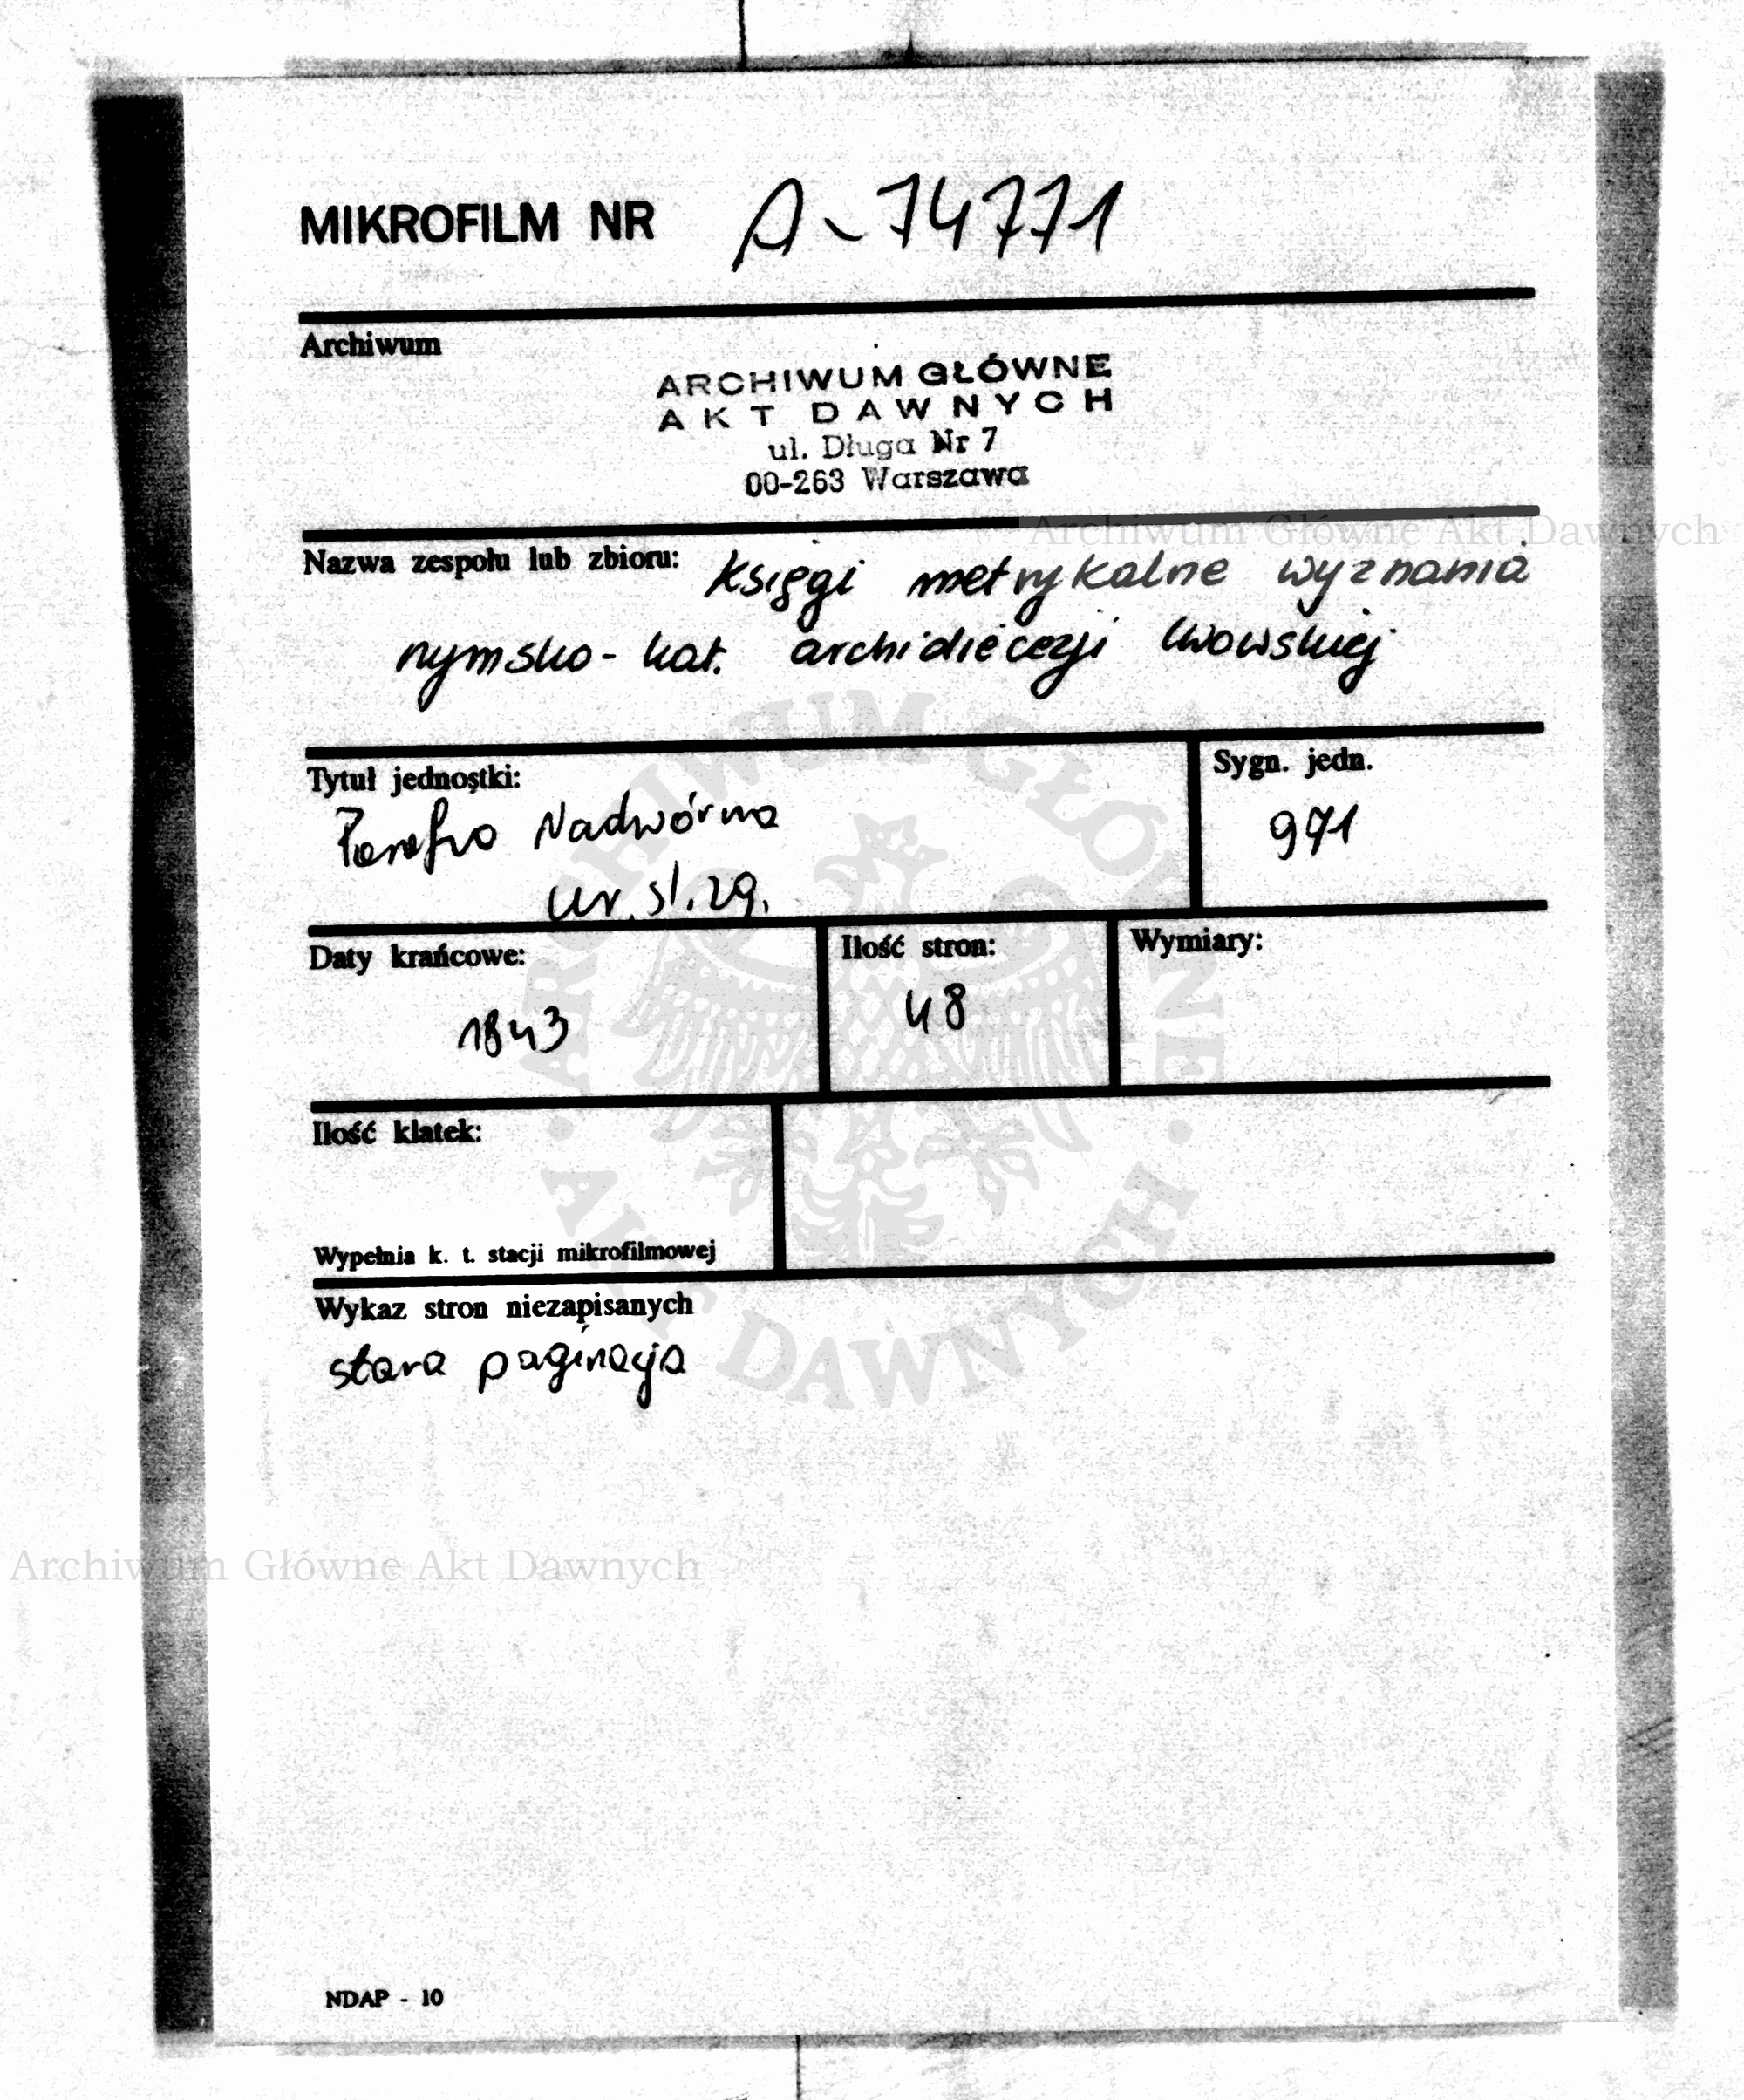 MIKROFILM NR A-74771
Archiwum
ARCHIWUM GŁÓWNE
AKT DAWNYCH
ul. Długa Nr 7
00-263 Warszawa
Archiwum Główne Akt Dawnych
Nazwa zespołu lub zbioru: Księgi metrykalne wyznania
rzymsko-kat. archidiecezji lwowskiej
Tytuł jednostki:
Parafia Nadwórna
ur. śl. zg.
Sygn. jedn.
971
Daty krańcowe:
1843
Ilość stron:
48
Wymiary:
Ilość klatek:
Wypełnia k. t. stacji mikrofilmowej
Wykaz stron niezapisanych
stara paginacja
ARCHIWUM GŁÓWNE
• AKT DAWNYCH •
Archiwum Główne Akt Dawnych
NDAP - 10